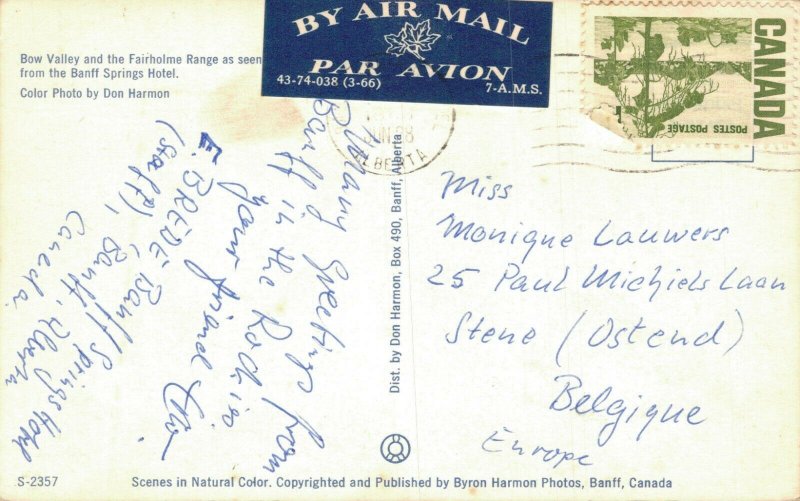 Bow Valley and the Fairholme Range as seen
from the Banff Springs Hotel.
Color Photo by Don Harmon
BY AIR MAIL
PAR AVION
43-74-038 (3-66)
7-A.M.S.
CANADA
POSTES POSTAGE
JUN
ALBERTA
Many greetings from
Banff in the Rockies
your friend
E. BREDE, Banff Springs Hotel
(staff), Banff, Alberta
Canada.
Dist. by Don Harmon, Box 490, Banff, Alberta
Miss
Monique Lauwers
25 Paul Michiels Laan
Stene (Ostend)
Belgique
Europe
S-2357
Scenes in Natural Color. Copyrighted and Published by Byron Harmon Photos, Banff, Canada